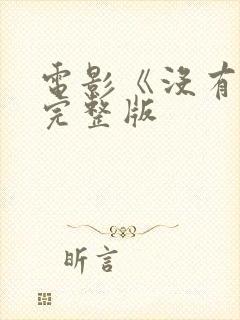 電影《沒有
完整版
昕言